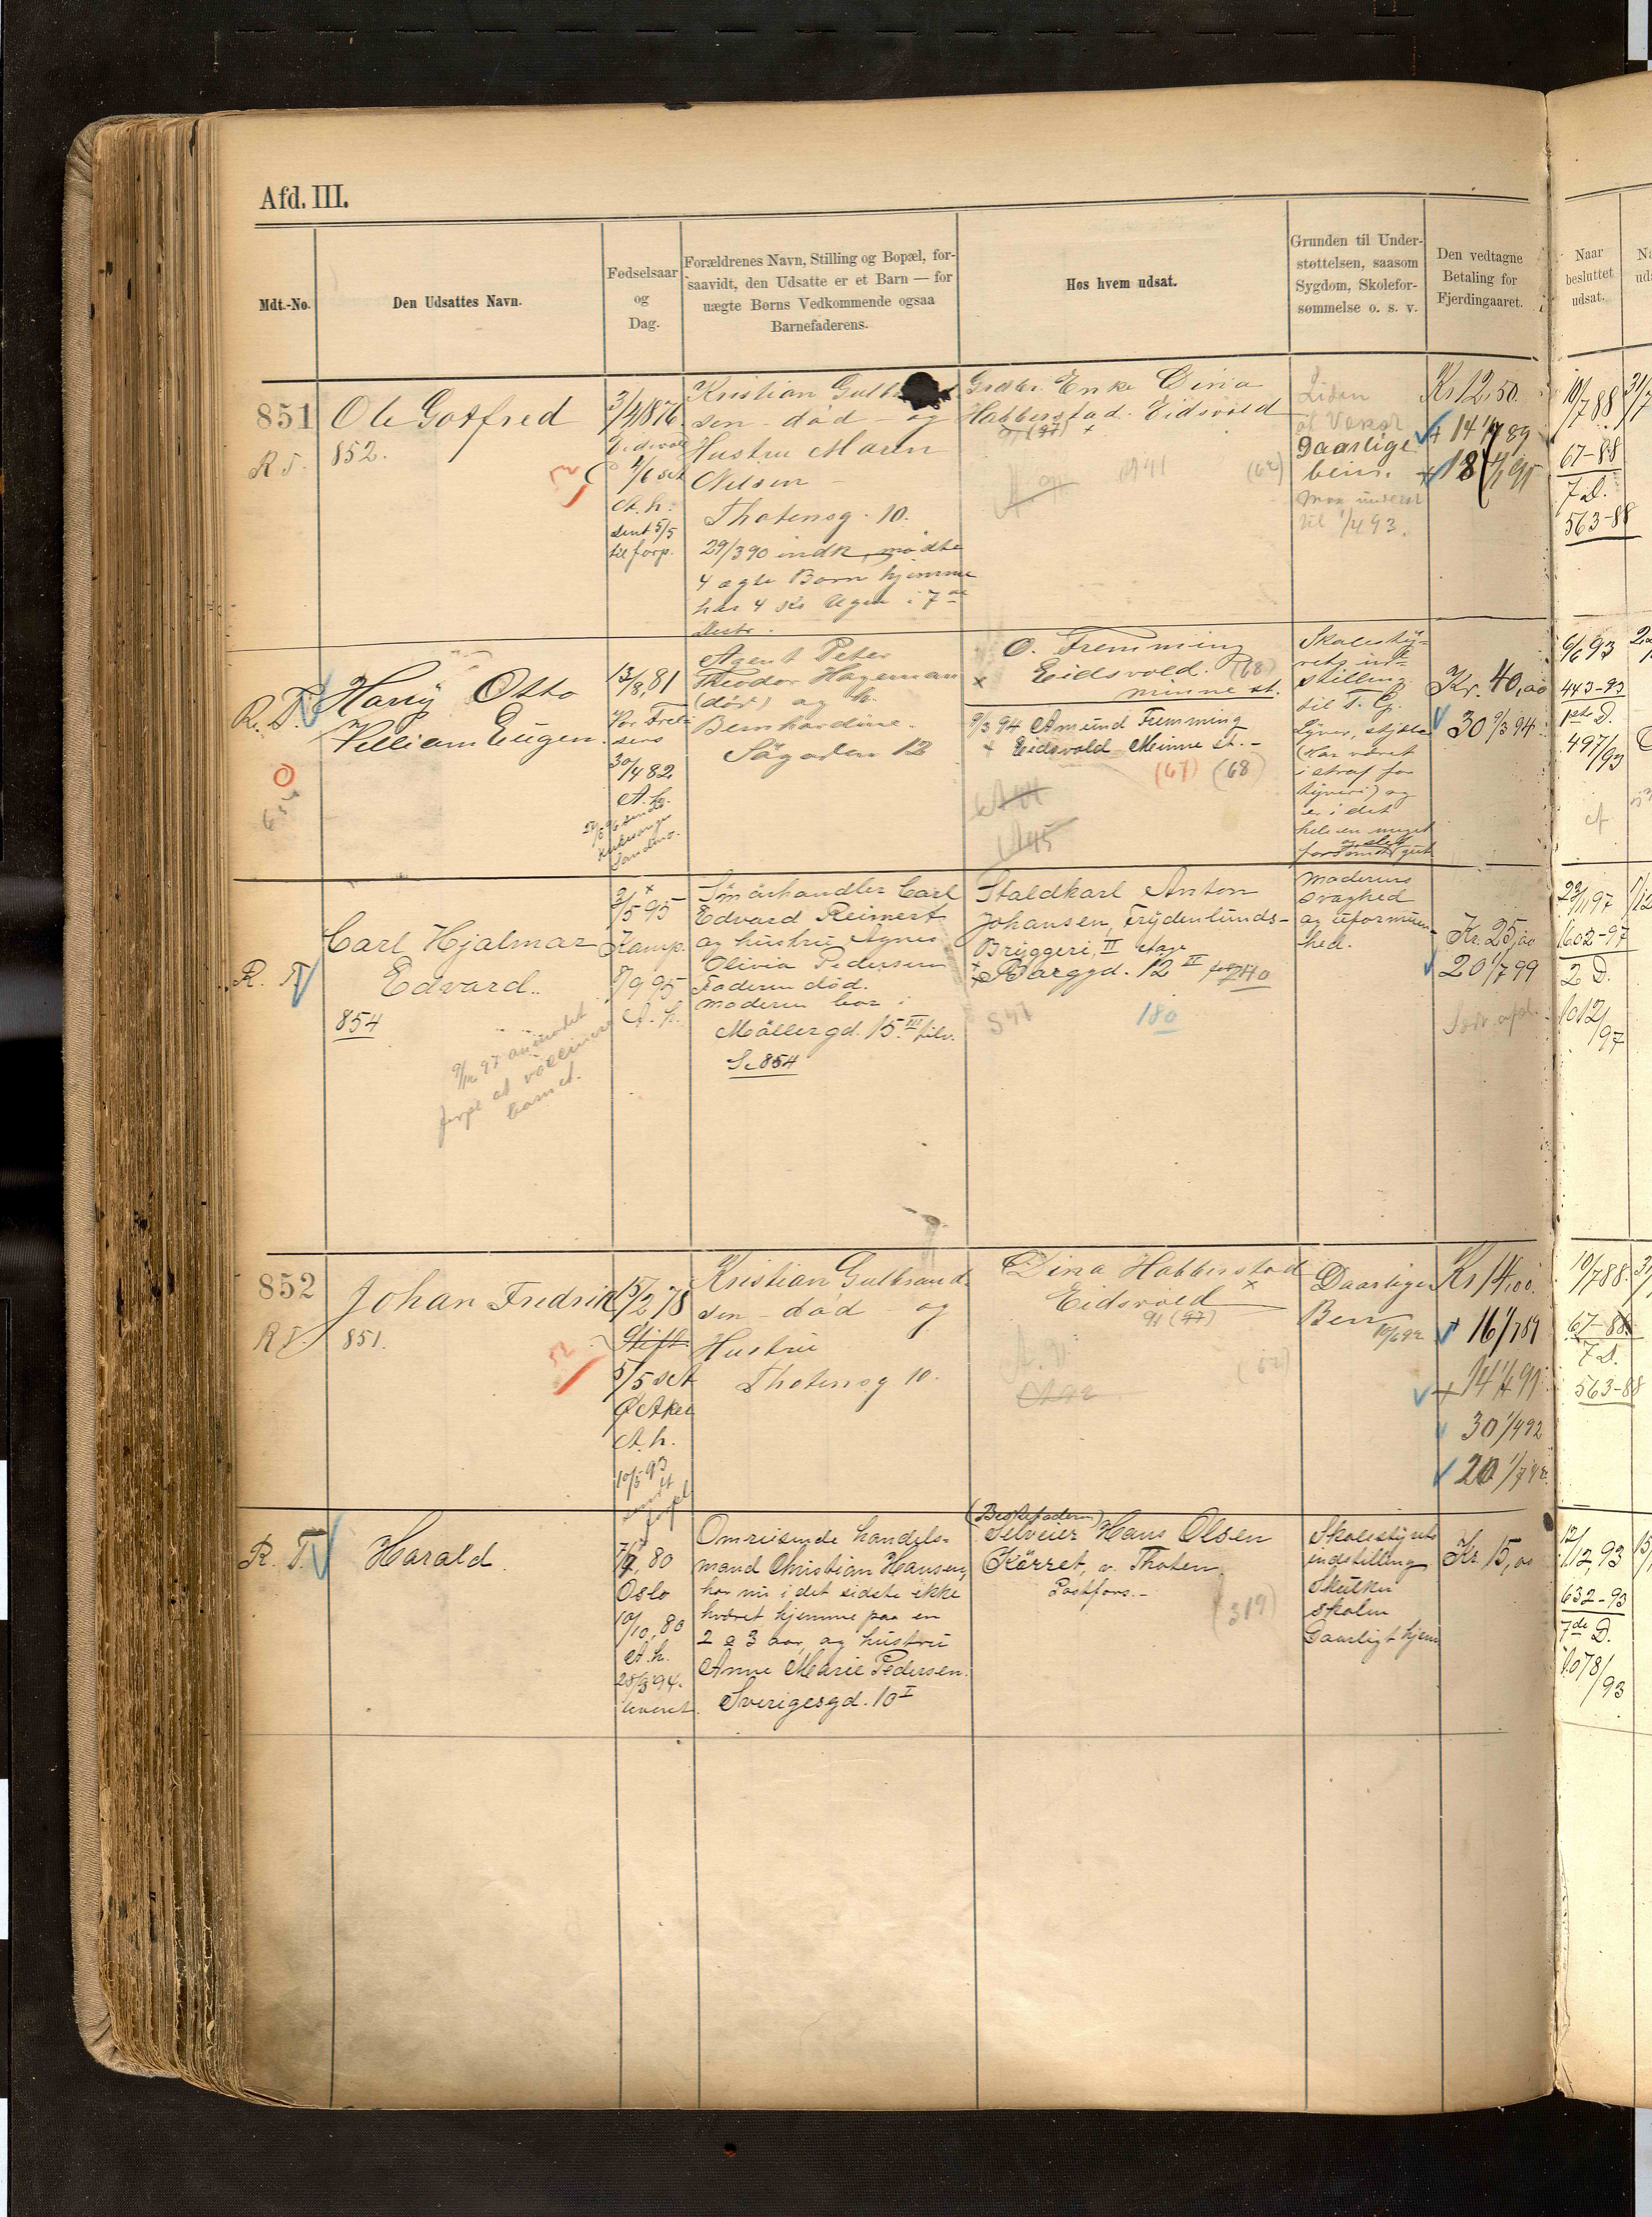 Afd. III.
Mdt.-No.
Den Udsattes Navn.
Fødselsaar
og
Dag.
Forældrenes Navn, Stilling og Bopæl, for-
saavidt, den Udsatte er et Barn — for
uægte Børns Vedkommende ogsaa
Barnefaderens.
Hos hvem udsat.
Grunden til Under-
støttelsen, saasom
Sygdom, Skolefor-
sømmelse o. s. v.
Den vedtagne
Betaling for
Fjerdingaaret.
Naar
besluttet
udsat.
851
R T.
Ole Gotfred
852.
3/4 1876.
4/6 set
A. h.
sent 5/5
til forp.
Kristian
sen - død - og
Hustru Maren
Nilsen -
Thotensg. 10.
29/3 90 indk, mødte
4 ægte Børn hjemme
har 4 Kr Ugen i 7de
Distr.
Enke Dina
Habberstad. Eidsvold
(97)
(62)
Liden
af Vækst
Daarlige
bein.
til 1/4 93.
Kr 12,50.
+ 14 1/7 89
+ 18
10/7 88
67-88
7 D.
563-88
R. T.
Harry Otto
Villiam Eugen.
13/8, 81
Vor Frel-
sers
30/4 82.
A. h.
Agent Peter
Theodor Hageman
(død) og h.
Bernhardine.
Søgaden 12
O. Fremming
Eidsvold. (68)
minne st.
9/3 94 Amund Fremming
+ Eidsvold Minne St. -
(67) (68)
Skolesty-
rets ind-
stilling
til T. G.
Lyver, stjæler
(Har været
i straf for
tyveri) og
er i det
hele en meget
Kr. 40,00
30 9/3 94.
6/6 93
443-93
1ste D.
497/93
R. T.
Carl Hjalmar
Edvard.
854
9/12 97 anmodet
forpl at vaccinere
barnet.
2/5 95
Kamp.
8/9 95
A. h.
Småhandler Carl
Edvard Reimert
og hustru Agnes
Olivia Pedersen
Faderen død.
moderen bor i
Møllergd. 15 III
Se 854
Staldkarl Anton
Johansen, Frydenlunds-
Bryggeri, II etage
Borggd. 12 II
180
moderens
svaghed
og uformuen-
hed.
Kr. 25,00
20 1/7 99
23/11 97
1602-97
2 D.
1012/97
852
R T.
Johan Fredrik
851.
15/2 78
5/5 set
Ø Aker
A. h.
10/5 93
Kristian Gulbrand
sen - død - og
Hustru
Thotensg 10.
Dina Habberstad
Eidsvold
91 (97)
Daarlige
Ben
Kr 14,00.
+ 16 1/7 89
30 1/4 92
10/7 88.
67-88
7 D.
563-88
R. T.
Harald
80
Oslo
10/10, 80
A. h.
28/3 94.
leveret.
Omreisende handels-
mand Christian Hansen,
har nu i det sidste ikke
hværet hjemme paa en
2 a 3 aar, og hustru
Anne Marie Pedersen.
Sverigesgd. 10 I
(Bestefaderen)
Selveier Hans Olsen
Kørret, v. Thoten.
Postfors. -
(319)
Skolestyrets
indstilling
Skulker
skolen
Daarligt hjem
Kr. 15,00
12/12, 93
632-93
7de D.
1078/93